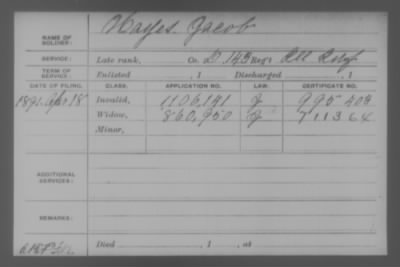 NAME OF SOLDIER: Hayes, Jacob
SERVICE: Late rank, Co. D, 145 Reg't Ill Inf
TERM OF SERVICE: Enlisted , 1 Discharged , 1
DATE OF FILING. CLASS. APPLICATION NO. LAW. CERTIFICATE NO.
1891 Apr 18 Invalid, 1106,141 J 995 404
Widow, 860,950 J 711364
Minor,
ADDITIONAL SERVICES:
REMARKS:
Died , 1 , at